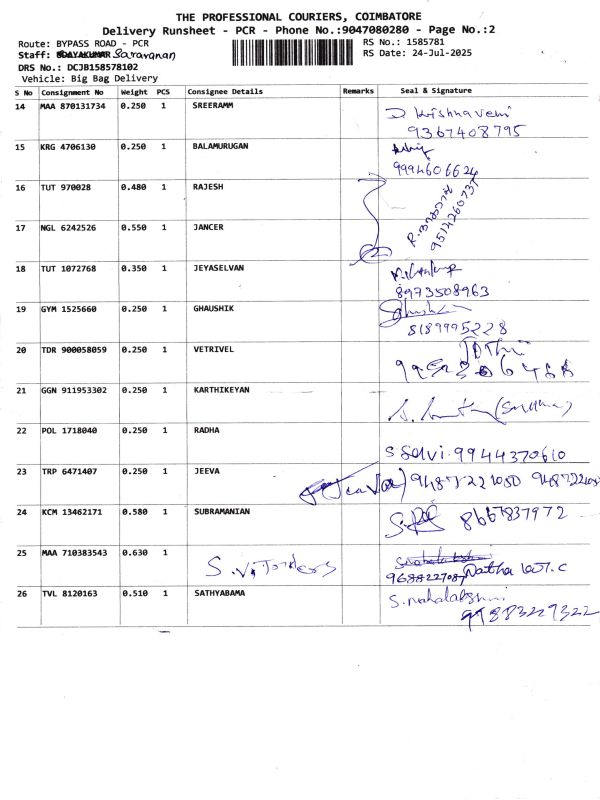 THE PROFESSIONAL COURIERS, COIMBATORE
Delivery Runsheet - PCR - Phone No.:9047080280 - Page No.:2
Route: BYPASS ROAD - PCR RS No.: 1585781
Staff: UDAYAKUMAR Saravanan RS Date: 24-Jul-2025
DRS No.: DCJB158578102
Vehicle: Big Bag Delivery
S No Consignment No Weight PCS Consignee Details Remarks Seal & Signature
14 MAA 870131734 0.250 1 SREERAMM D Krishnaveni
9367408795
15 KRG 4706130 0.250 1 BALAMURUGAN
9994606624
16 TUT 970028 0.480 1 RAJESH
9514260737
17 NGL 6242526 0.550 1 JANCER
18 TUT 1072768 0.350 1 JEYASELVAN
8973508963
19 GYM 1525660 0.250 1 GHAUSHIK
8189995228
20 TDR 900058059 0.250 1 VETRIVEL
21 GGN 911953302 0.250 1 KARTHIKEYAN
22 POL 1718040 0.250 1 RADHA
S Selvi. 9944370610
23 TRP 6471407 0.250 1 JEEVA
24 KCM 13462171 0.580 1 SUBRAMANIAN 8667837972
25 MAA 710383543 0.630 1
S.V. Traders
9688227087
26 TVL 8120163 0.510 1 SATHYABAMA S. mahalakshmi